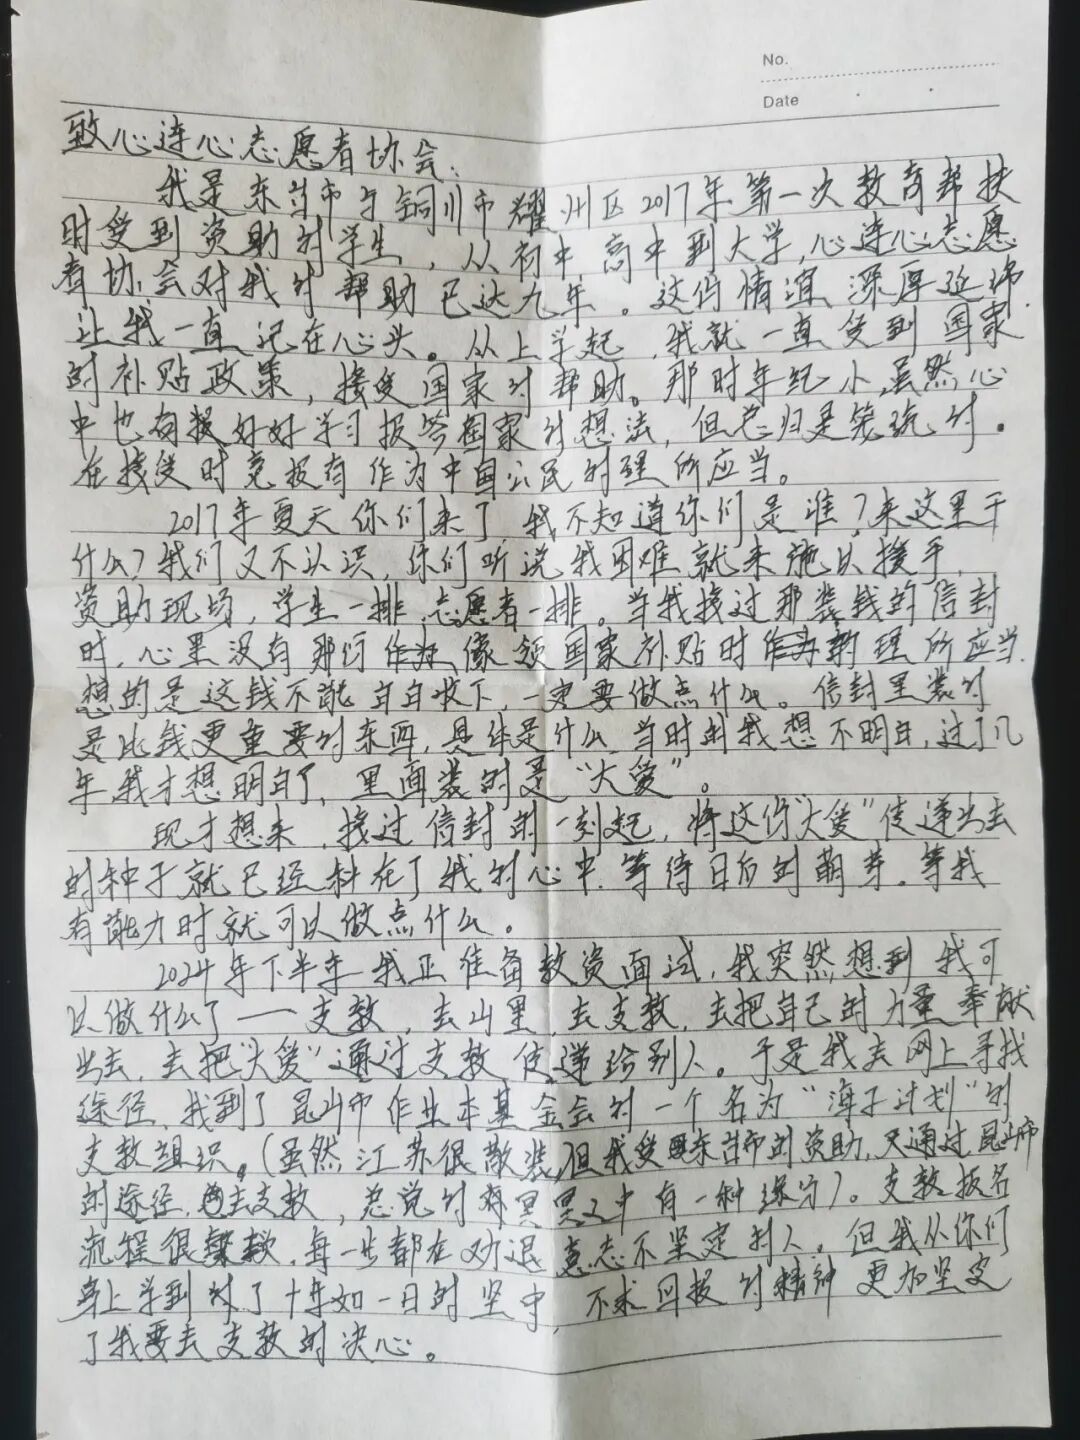 No.
Date
致心连心志愿者协会:
我是东台市与铜川市耀州区2017年第一次教育帮扶
时受到资助的学生，从初中,高中到大学,心连心志愿
者协会对我的帮助已达九年。这份情谊深厚延绵
让我一直记在心头。从上学起,我就一直受到国家
的补贴政策，接受国家的帮助。那时年纪小,虽然心
中也有报好好学习报答国家的想法，但总归是笼统的.
在接受时竟没有作为中国公民的理所应当。
2017年夏天你们来了 我不知道你们是谁？来这里干
什么？我们又不认识，你们听说我困难就来施以援手,
资助现场，学生一排,志愿者一排。当我接过那装钱的信封
时,心里没有那份作为像领国家补贴时的理所应当,
想的是这钱不能白白收下,一定要做点什么。信封里装的
是比钱更重要的东西,具体是什么,当时的我想不明白,过了几
年,我才想明白了,里面装的是“大爱”。
现才想来,接过信封的一刻起,将这份“大爱”传递出去
的种子就已经种在了我的心中.等待日后的萌芽.等我
有能力时就可以做点什么。
2024年下半年我正准备教资面试,我突然想到我可
以做什么了——支教，去山里,去支教,去把自己的力量奉献
出去,去把“大爱”通过支教传递给别人。于是我去网上寻找
途径,找到了昆山市作业本基金会的一个名为“海子计划”的
支教组织。(虽然江苏很散装,但我受东台市的资助,又通过昆山市
的途径,去支教，总觉的有冥冥之中有一种缘分)。支教报名
流程很繁,每一步都在劝退意志不坚定的人。但我从你们
身上学到的了十年如一日的坚守,不求回报的精神更加坚定
了我要去支教的决心。